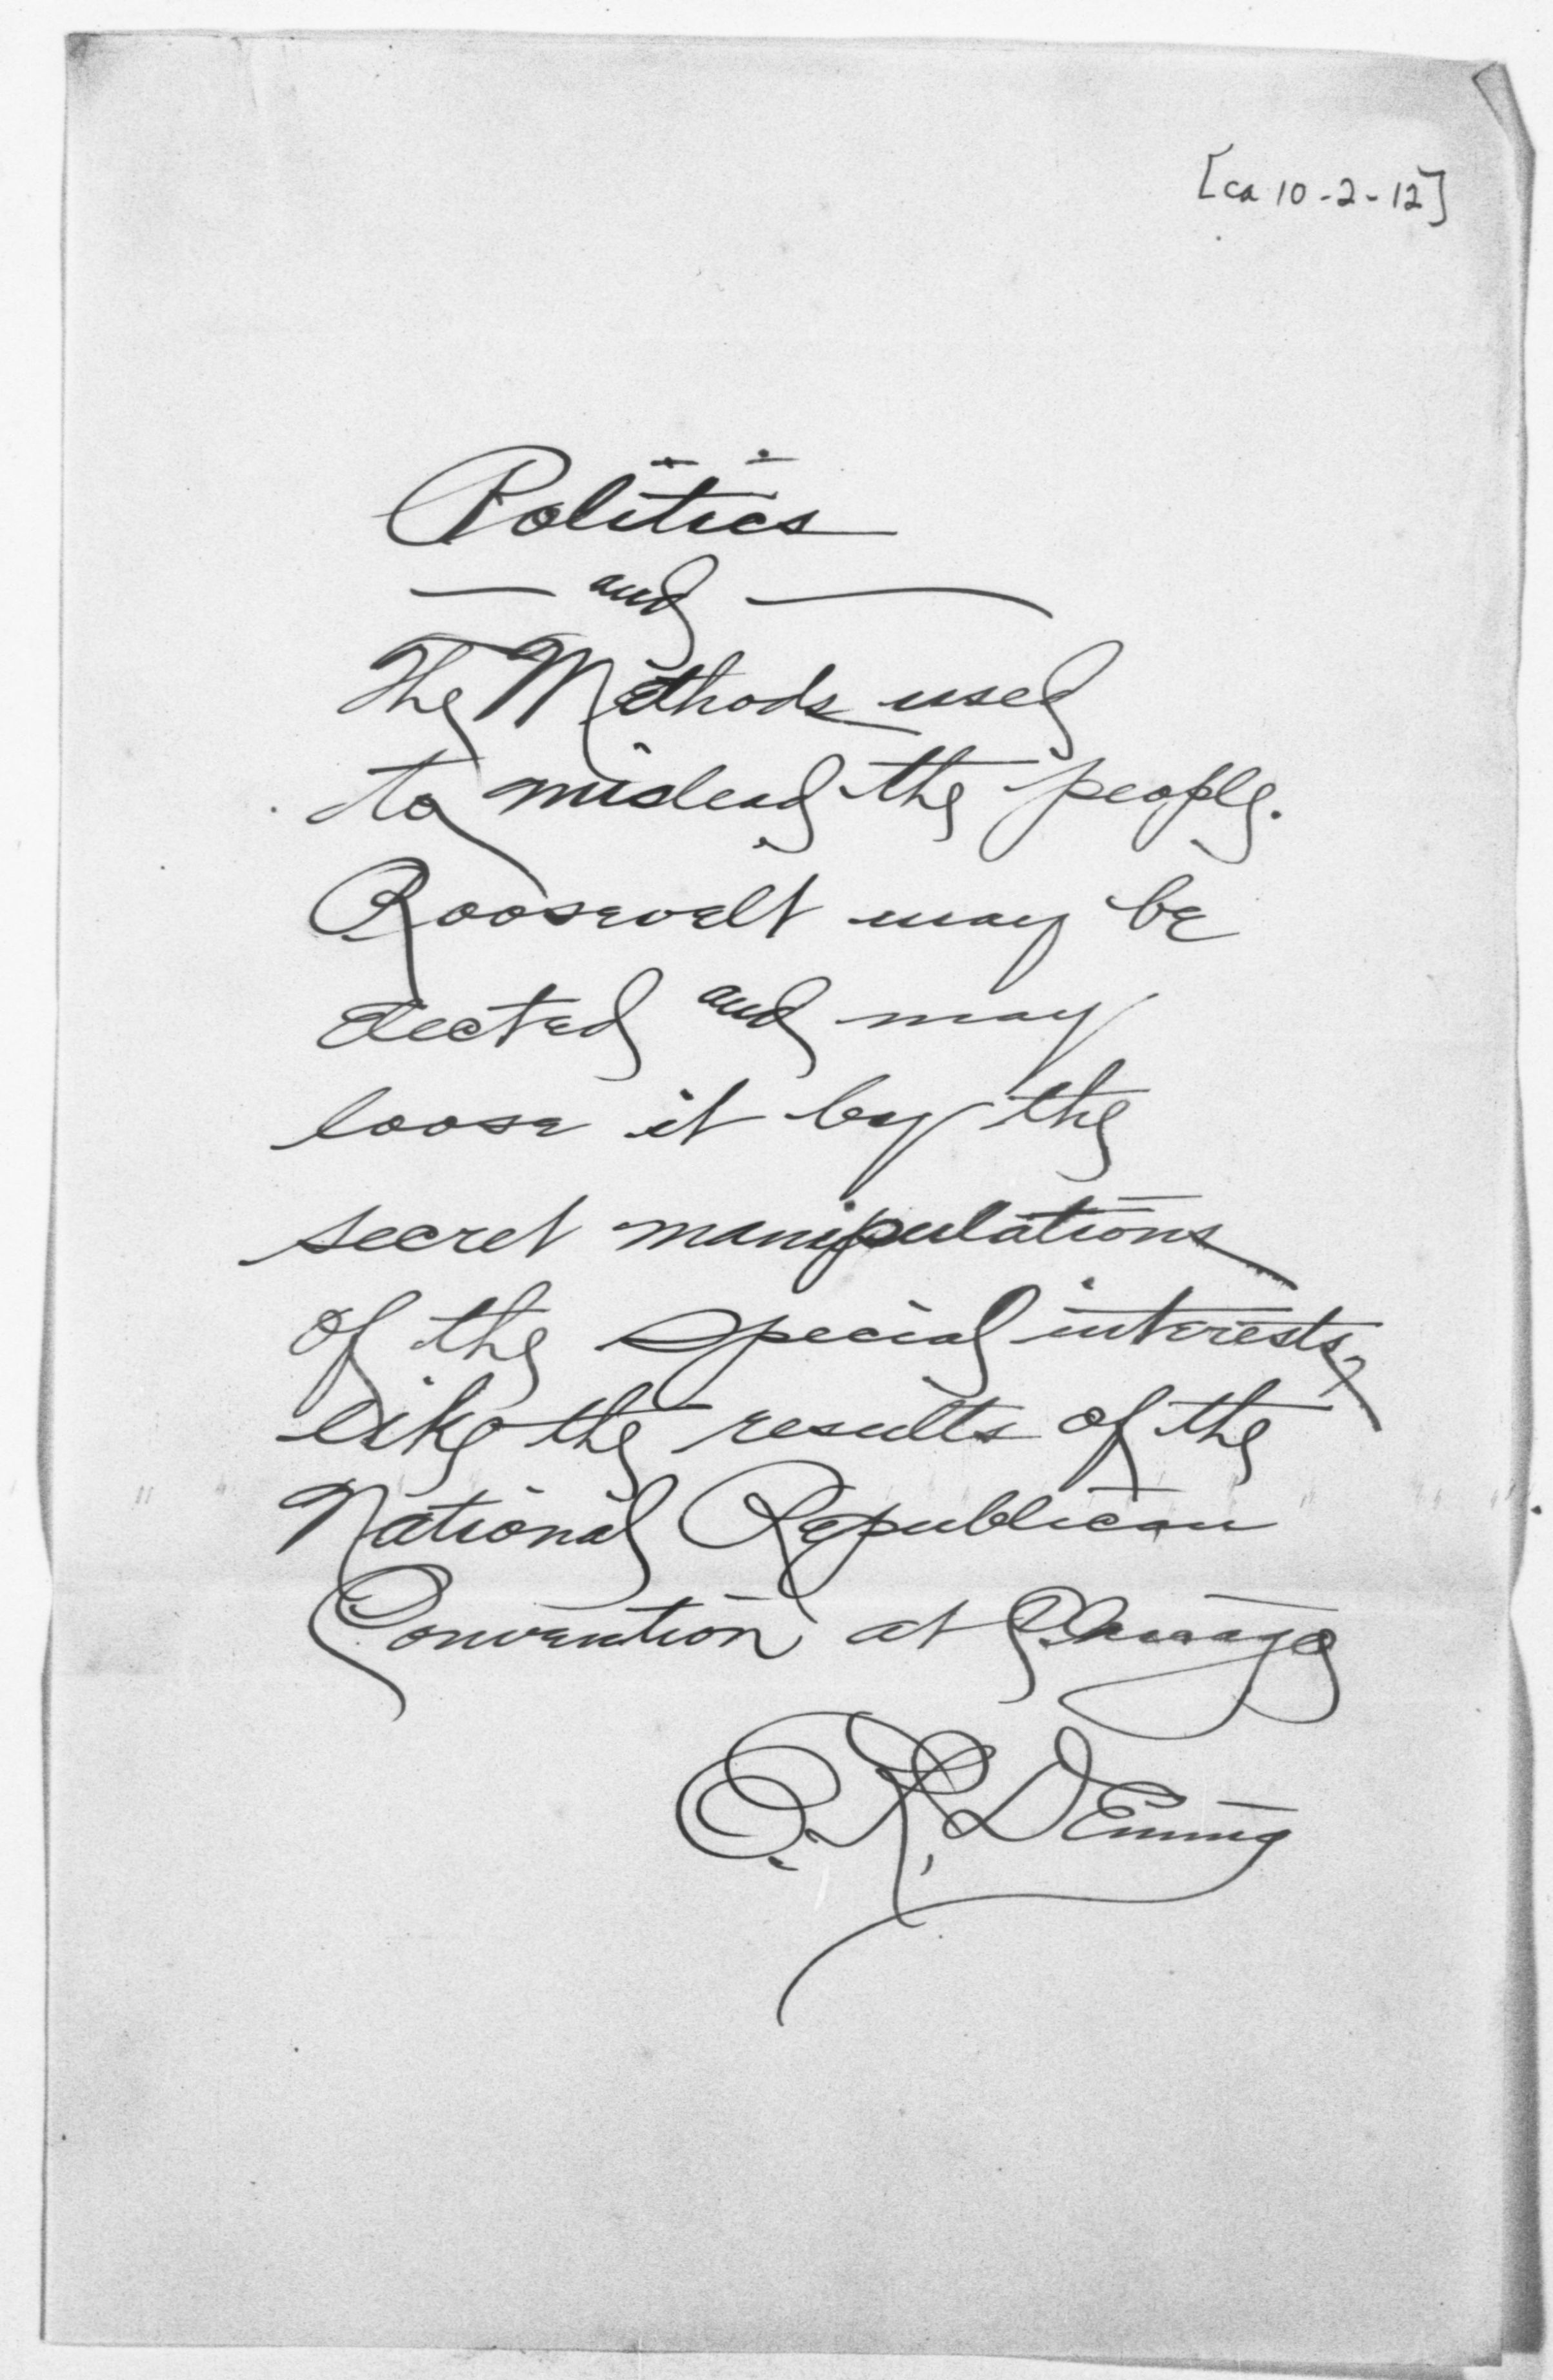 [ca 10-2-12]
Politics
— and —
The Methods used
to mislead the people.
Roosevelt may be
elected and may
loose it by the
secret manipulations
of the special interests,
like the results of the
National Republican
Convention at Chicago
C. R. Deming